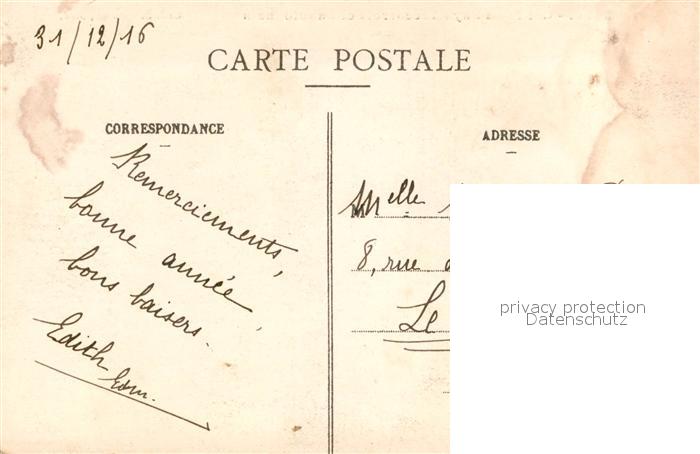 31/12/16
CARTE POSTALE
CORRESPONDANCE
Remerciements,
bonne année,
bons baisers.
Edith
ADRESSE
Melle
8, rue
Le
privacy protection
Datenschutz